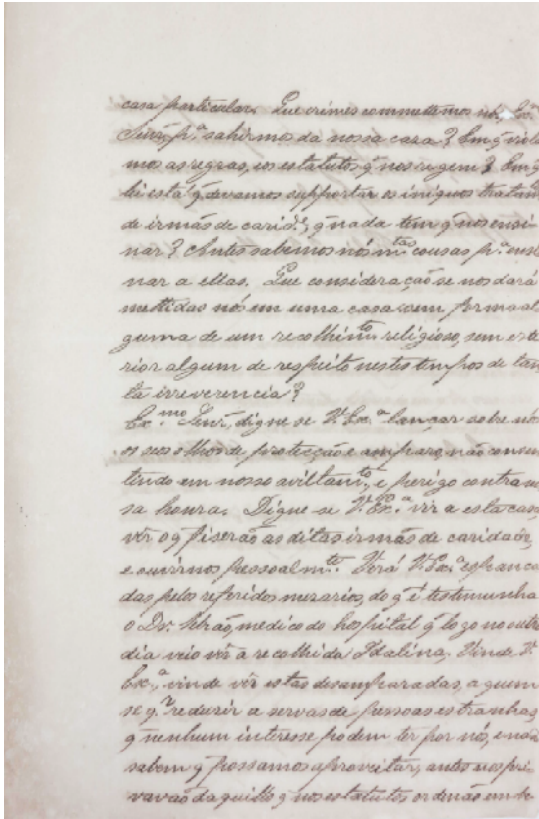 casa particular. Que crimes commettemos nós, Ex.mo
Senr., p.a sahirmo da nossa caza? Em q̃ viola
mos as regras, e os estatutos q̃ nos regem? Em q̃
lei está q̃ devamos supportar os iniquos tratam
de irmãs de carid.e, q̃ nada tem q̃ nos ensi-
nar? Antes sabemos nós m.tas cousas p.a ensi
nar a ellas. Que consideração se nos dará
mettidas nós em uma casa sem forma al
guma de um recolhim.to religioso, sem exte
rior algum de respeito nestes tempos de tan
ta irreverencia?
Ex.mo Senr., digne se V. Ex.a lançar sobre nós
os seos olhos de protecção e amparo, não consen
tindo em nosso aviltam.to, e perigo contra nos
sa honra. Digne-se V. Ex.a vir a esta casa
vêr o q̃ fiserão as ditas irmãs de caridade,
e ouvirnos pessoalm.te. Verá V. Ex.a espanca
das pelos referidos, do q̃ é testimunha
o Dr. medico do hospital q̃ logo no outro
dia veio vêr a recolhida Idalina. Vinde V.
Ex.a, vinde vêr estas desamparadas, a quem
se q.r redusir a servas de pessoas estranhas
q̃ nenhum interesse podem ter por nós, e nada
sabem q̃ possamos aproveitar, antes nos pri-
varão daquillo q̃ nos estatutos ordenão em de